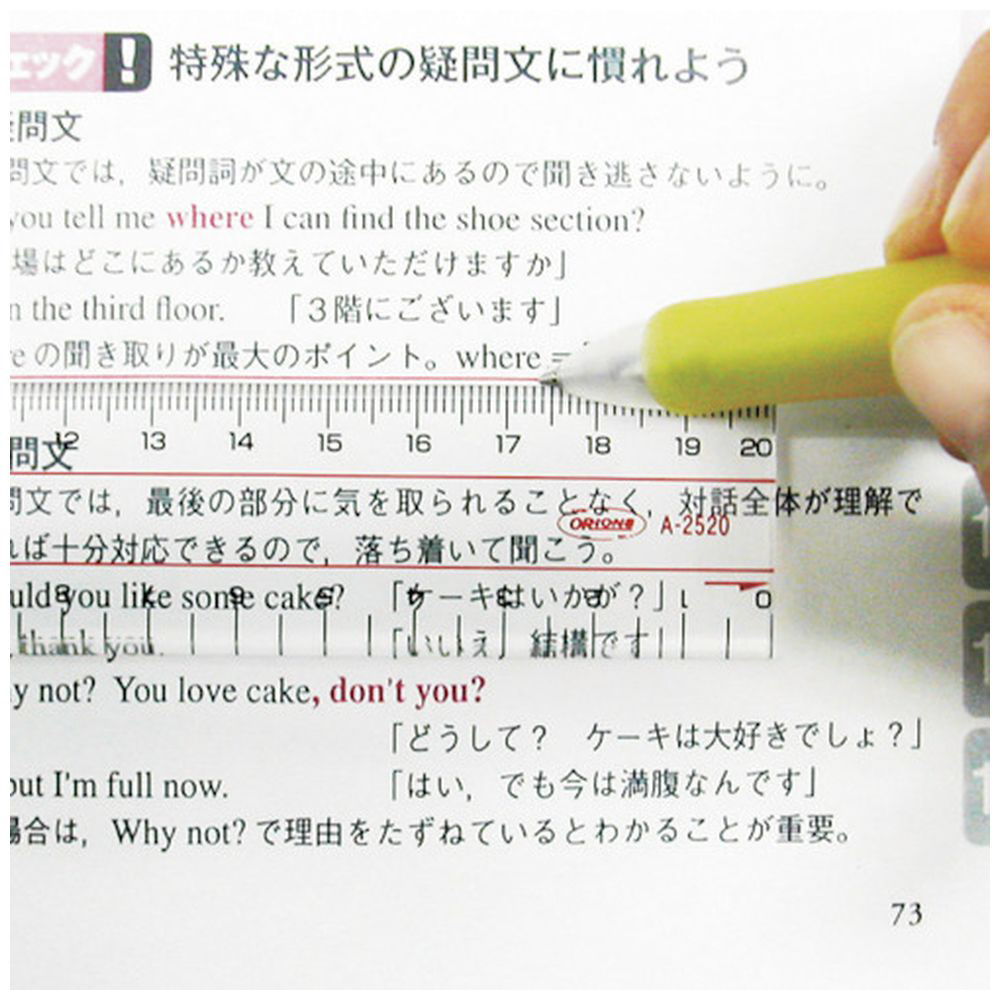 ェック ! 特殊な形式の疑問文に慣れよう
問文
問文では，疑問詞が文の途中にあるので聞き逃さないように。
you tell me where I can find the shoe section?
場はどこにあるか教えていただけますか」
n the third floor. 「3階にございます」
e の聞き取りが最大のポイント。where =
12 13 14 15 16 17 18 19 20
問文
問文では，最後の部分に気を取られることなく，対話全体が理解で
れば十分対応できるので，落ち着いて聞こう。
ORIONS A-2520
uld you like some cake? 「ケーキはいかが？」
8 7 6 5 4 3 2 1 0
thank you. 「いいえ，結構です」
y not? You love cake, don't you?
「どうして？ ケーキは大好きでしょ？」
but I'm full now. 「はい，でも今は満腹なんです」
場合は，Why not? で理由をたずねているとわかることが重要。
73